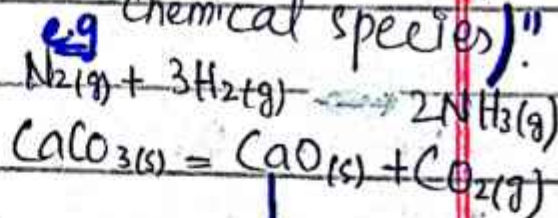 chemical species)".
e.g
N2(g) + 3H2(g) → 2NH3(g)
CaCo3(s) = CaO(s) + CO2(g)